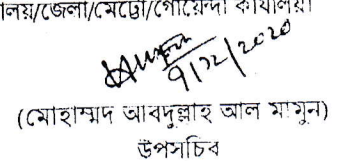 লয়/জেলা/মেট্রো/গোয়েন্দা কার্যালয়।
৭/১২/২০২০
(মোহাম্মদ আবদুল্লাহ আল মামুন)
উপসচিব